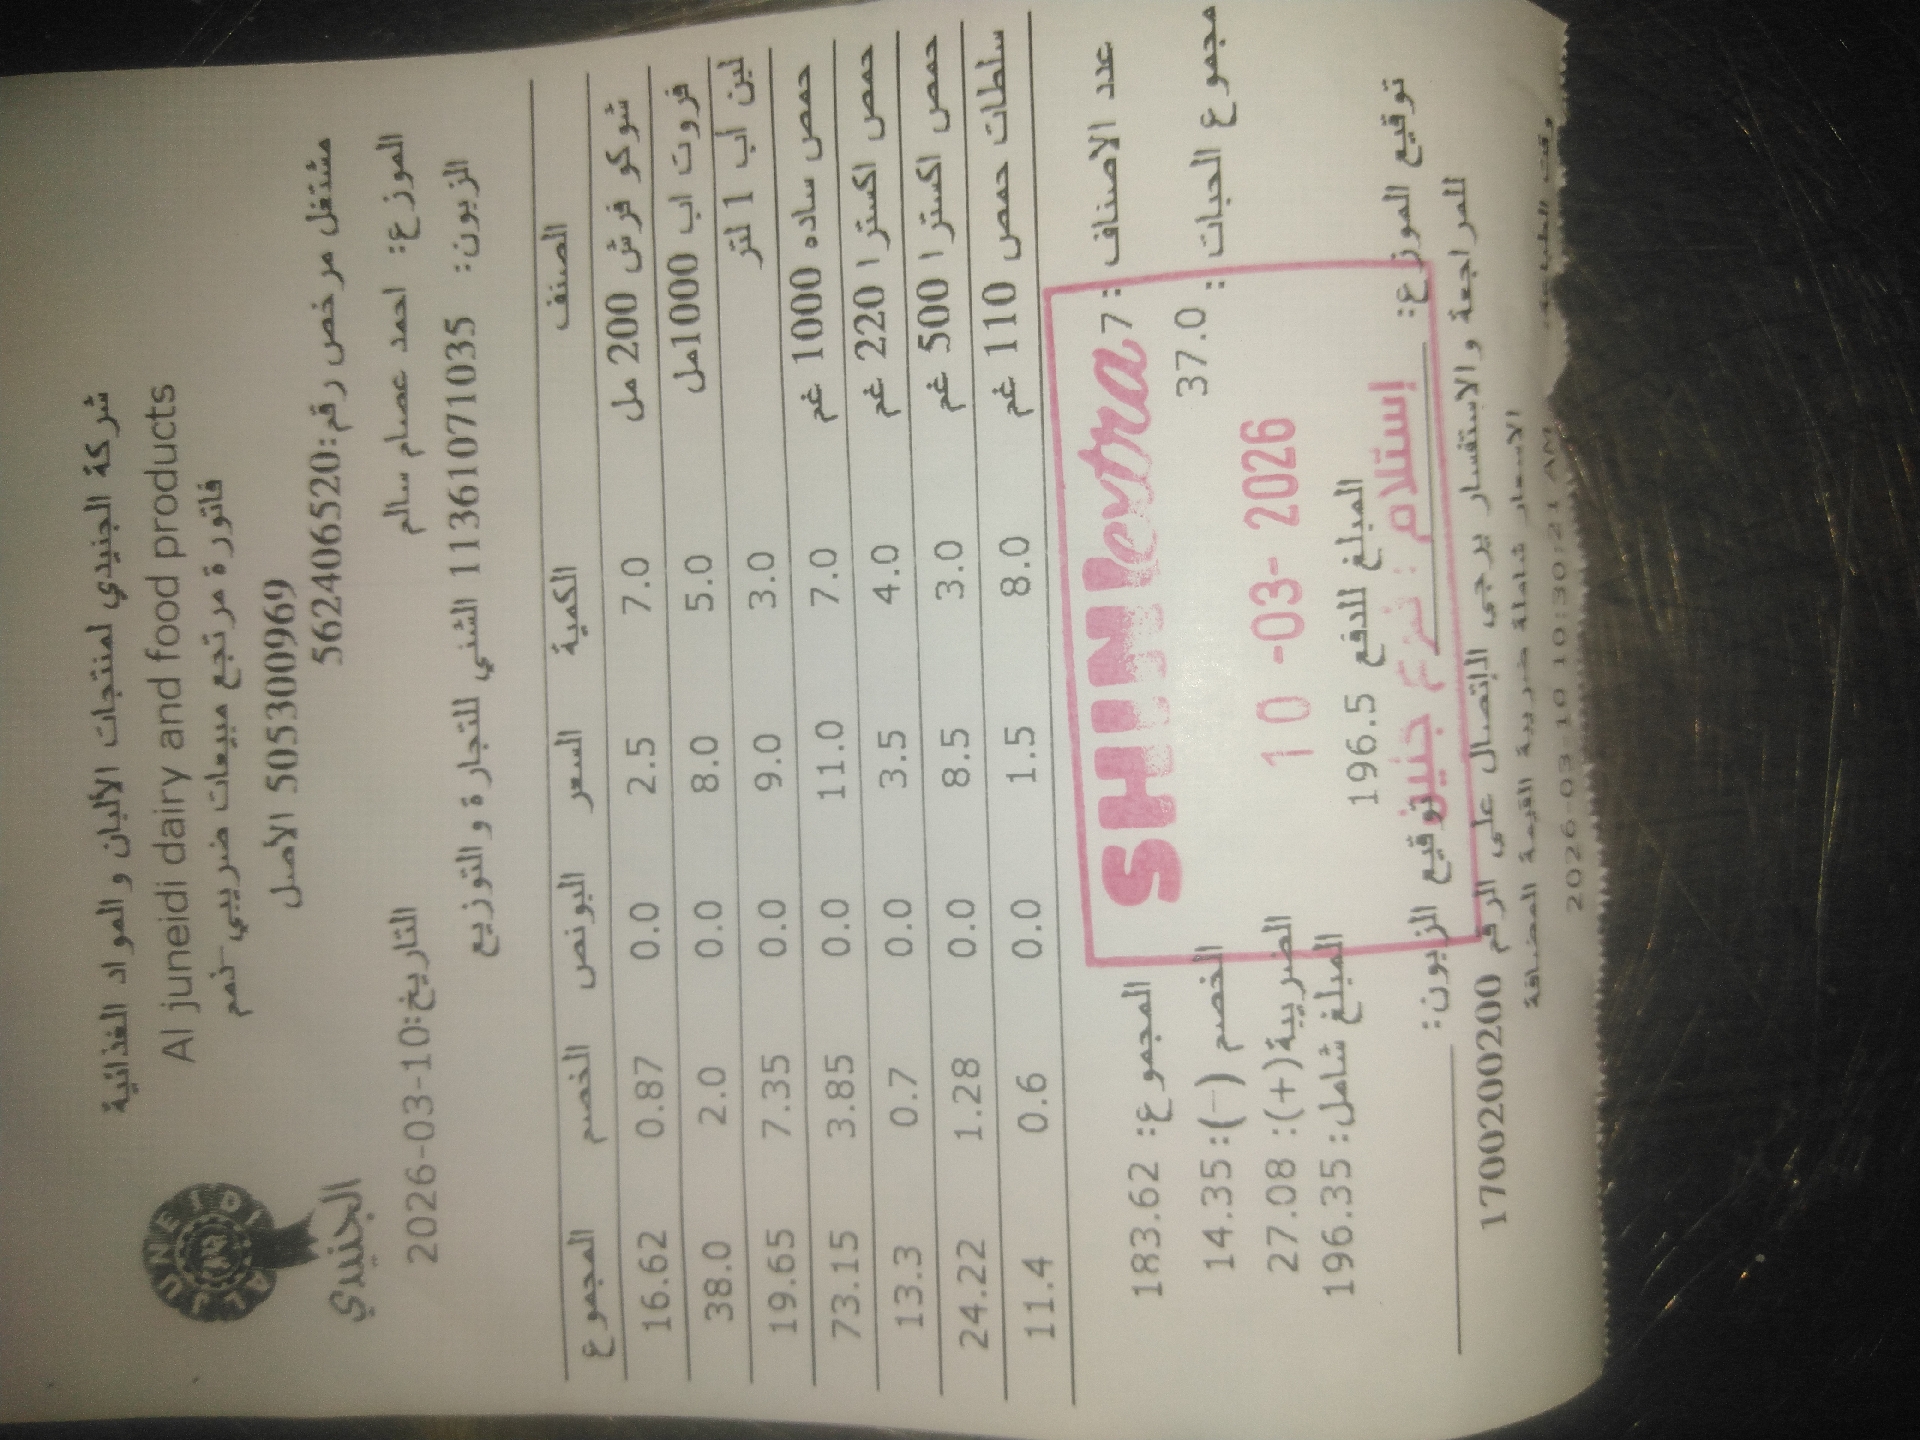 شركة الجنيدي لمنتجات الألبان والمواد الغذائية
Al juneidi dairy and food products
فاتورة مرتجع مبيعات ضريبي-نمم
505300969 الاصل
مشتغل مرخص رقم:562406520
AL JUNEIDI
الجنيدي
الموزع: احمد عصام سالم
التاريخ:2026-03-10
الزبون: 11361071035 الشني للتجارة والتوزيع
الصنف الكمية السعر البونص الخصم المجموع
شوكو فرش 200 مل 7.0 2.5 0.0 0.87 16.62
فروت اب 1000مل 5.0 8.0 0.0 2.0 38.0
لبن اب 1 لتر 3.0 9.0 0.0 7.35 19.65
حمص ساده 1000 غم 7.0 11.0 0.0 3.85 73.15
حمص اكسترا 220 غم 4.0 3.5 0.0 0.7 13.3
حمص اكسترا 500 غم 3.0 8.5 0.0 1.28 24.22
سلطات حمص 110 غم 8.0 1.5 0.0 0.6 11.4
عدد الاصناف : 7
المجموع: 183.62
مجموع الحبات : 37.0
الخصم (-): 14.35
الضريبة(+): 27.08
المبلغ للدفع 196.5
المبلغ شامل: 196.35
SHINI extra
10 -03- 2026
إستلام :
توقيع الموزع:
توقيع الزبون:
للمراجعة والاستفسار يرجى الإتصال على الرقم 1700200200
الاسعار شاملة ضريبة القيمة المضافة
2026-03-10 10:30:21 AM